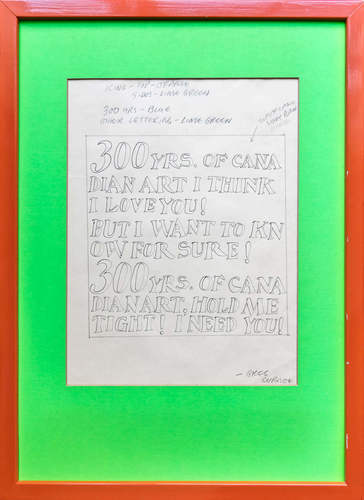 TOP - ORANGE
SIDES - LIME GREEN
300 YRS - BLUE
OTHER LETTERING - LIME GREEN
300 YRS. OF CANA
DIAN ART I THINK
I LOVE YOU!
BUT I WANT TO KN
OW FOR SURE!
300 YRS. OF CANA
DIAN ART, HOLD ME
TIGHT! I NEED YOU!
- GREG
CURNOE